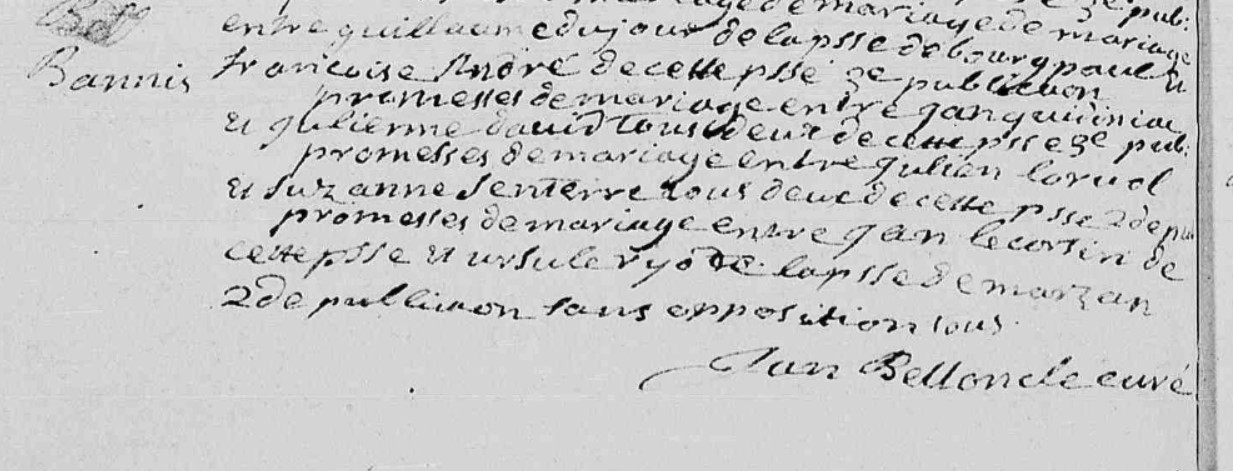 mariage de mariage de 3e pub:
Bannis
entre guillaume dujour de la psse de bourgpaul et
francoise André de cette psse 3e publicaon
promesses de mariage entre jan guidiniac
et julienne david tous deux de cette psse 3e pub:
promesses de mariage entre julien lorvol
et suzanne senterre tous deux de cette psse 2de pu
promesses de mariage entre jan lecorsin de
cette psse et ursule ryo de la psse de marzan
2de publicaon sans opposition sous
Jan Belloncle curé